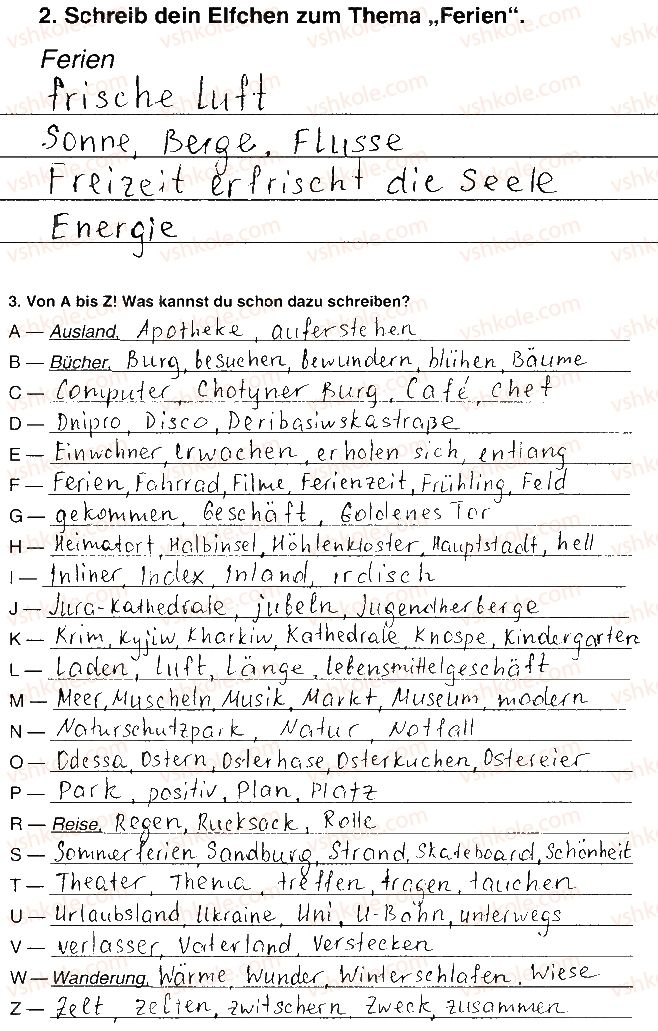 2. Schreib dein Elfchen zum Thema „Ferien“.
Ferien
frische Luft
Sonne, Berge, Flusse
Freizeit erfrischt die Seele
Energie
3. Von A bis Z! Was kannst du schon dazu schreiben?
A — Ausland, Apotheke, auferstehen
B — Bücher, Burg, besuchen, bewundern, blühen, Bäume
C — Computer, Chotyner Burg, Café, chef
D — Dnipro, Disco, Deribasiwskastraße
E — Einwohner, erwachen, erholen sich, entlang
F — Ferien, Fahrrad, Filme, Ferienzeit, Frühling, Feld
G — gekommen, Geschäft, Goldenes Tor
H — Heimatort, Halbinsel, Höhlenkloster, Hauptstadt, hell
I — Inliner, Index, Inland, irdisch
J — Jura-Kathedrale, jubeln, Jugendherberge
K — Krim, Kyjiw, Kharkiw, Kathedrale, Knospe, Kindergarten
L — Laden, Luft, Länge, Lebensmittelgeschäft
M — Meer, Muscheln, Musik, Markt, Museum, modern
N — Naturschutzpark, Natur, Notfall
O — Odessa, Ostern, Osterhase, Osterkuchen, Ostereier
P — Park, positiv, Plan, Platz
R — Reise, Regen, Rucksack, Rolle
S — Sommerferien, Sandburg, Strand, Skateboard, Schönheit
T — Theater, Thema, treffen, tragen, tauchen
U — Urlaubsland, Ukraine, Uni, U-Bahn, unterwegs
V — verlasser, Vaterland, Verstecken
W — Wanderung, Wärme, Wunder, Winterschlafen, Wiese
Z — Zelt, zelten, zwitschern, Zweck, zusammen